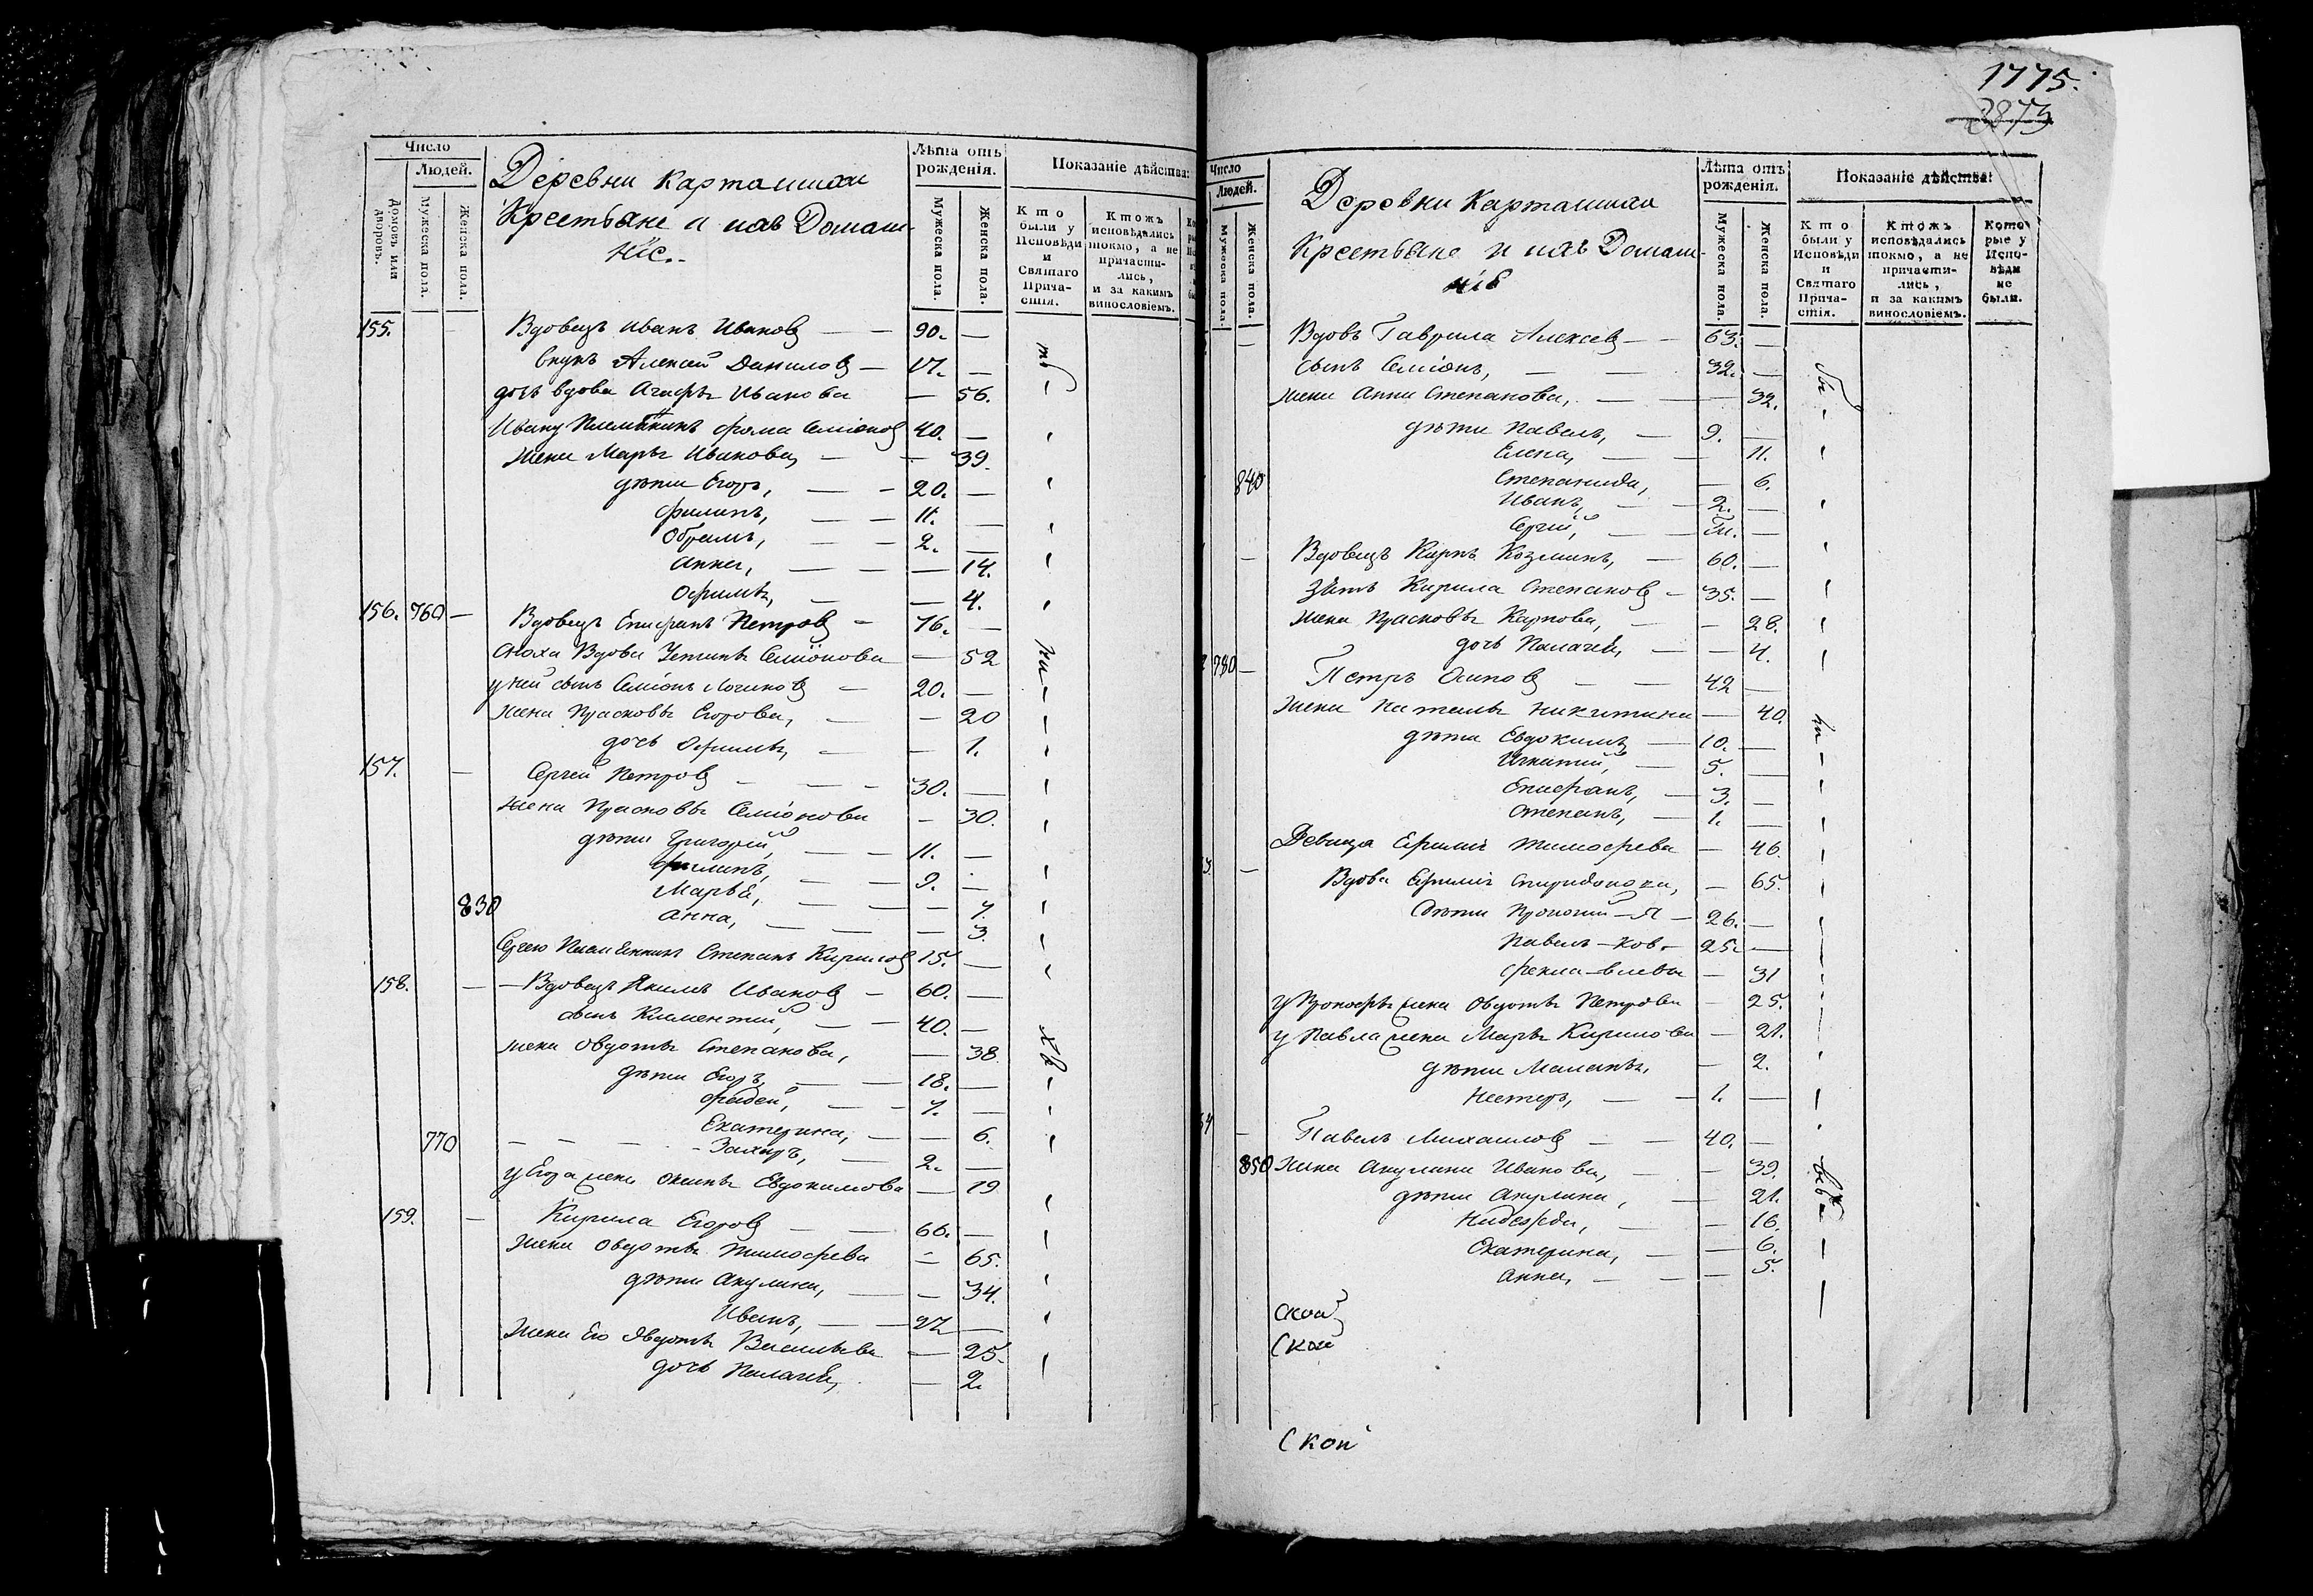 Число
Людей.
Домовъ или дворовъ.
Мужеска пола.
Женска пола.
Деревни Карташихи
Крестьяне и ихъ Домаш-
ніе.
Лѣта отъ рожденія.
Мужеска пола.
Женска пола.
Показаніе дѣйства:
Кто были у Исповѣди и Святаго Причастія.
Ктожъ исповѣдались токмо, а не причастились, и за какимъ винословіемъ.
155. — Вдовецъ Иванъ Ивановъ — — 90. —
внукъ Алексей Даниловъ — 17. —
дочь вдова Агафья Иванова — 56.
Ивану Племянникъ Фома Семіоновъ 40. —
жена Марья Иванова, — — 39.
дѣти Егоръ, — — 20. —
Филипъ, — — 11. —
Обрамъ, — — 2. —
Анна, — — — 14.
Офимья, — — 4.
156. 760 — Вдовецъ Епифанъ Петровъ — 76. —
сноха Вдова Устинья Семіонова — 52
у ней сынъ Семіонъ Логиновъ — 20. —
жена Прасковья Егорова, — — 20
дочь Офимья, — — 1.
157. — Сергей Петровъ — — — 30. —
жена Прасковья Семіонова — 30.
дѣти Григорей, — — 11. —
Филипъ, — — 9. —
Марья, — — — 7.
830 Анна, — — — 3.
Сергею Племянникъ Степанъ Кириловъ 15. —
158. — — Вдовецъ Якимъ Ивановъ — 60. —
сынъ Климентей, — — 40. —
жена Овдотья Степанова, — 38
дѣти Егоръ, — — 18. —
Фадей, — — 7. —
Екатерина, — — 6.
770 — — — - Захаръ, — 2. —
у Егора жена Оксинья Евдокимова — 19
159. — Кирила Егоровъ — — 66. —
жена Овдотья Тимофева — 65.
дѣти Акулина, — — 34.
Иванъ, — — 27 —
жена Его Овдотья Васильева — 25.
дочь Палагея, — 2.
1775.
2873
Число
Людей.
Мужеска пола.
Женска пола.
Деревни Карташихи
Крестьяне и ихъ Домаш-
ніе
Лѣта отъ рожденія.
Мужеска пола.
Женска пола.
Показаніе дѣйства:
Кто были у Исповѣди и Святаго Причастія.
Ктожъ исповѣдались токмо, а не причастились, и за какимъ винословіемъ.
Которые у Исповѣди не были.
— Вдовъ Гаврила Алексевъ — — 63. —
сынъ Семіонъ, — — 32. —
жена Анна Степанова, — — 32.
дѣти Павелъ, — 9. —
Елена, — — 11.
840 Степанида, — 6.
Иванъ, — — 2. —
Сергей, — —
— Вдовецъ Карпъ Козминъ, — 60. —
Зять Кирила Степановъ — 35. —
жена Прасковья Карпова, — — 28.
дочь Палагея, — — 4.
780 — Петръ Осиповъ — — 42 —
жена Наталья Никитина — 40.
дѣти Евдокимъ — 10. —
Игнатий, — 5. —
Епифанъ, — 3. —
Степанъ, — 1. —
Девица Ефимия Тимофева — 46.
3. — Вдова Ефимия Спиридонова, — 65.
дѣти Прокопий — Я — 26. —
Павелъ — ков. — 25. —
Фекла — влева — 31
у Прокофья жена Овдотья Петрова — 25.
у Павла жена Марья Кирилова — 21.
дѣти Маланья, — 2.
Нестеръ, — — 1. —
64 — Павелъ Михаиловъ — — 40. —
850 жена Акулина Иванова, — — 39.
дѣти Акулина, — — 21.
Надежда, — — 16.
Екатерина, — — 6.
Анна, — — — 5.
Скои
Скои
Скои